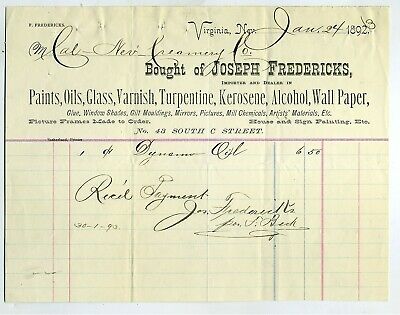 F. FREDERICKS.
Virginia, Nev. Jan. 24 1893
M Cal - Nev Creamery Co.
Bought of JOSEPH FREDERICKS,
IMPORTER AND DEALER IN
Paints, Oils, Glass, Varnish, Turpentine, Kerosene, Alcohol, Wall Paper,
Glue, Window Shades, Gilt Mouldings, Mirrors, Pictures, Mill Chemicals, Artists' Materials, Etc.
Picture Frames Made to Order. House and Sign Painting, Etc.
No. 43 SOUTH C STREET.
1 Dynamo Oyl 6 50
Rec'd Payment
Jos. Fredericks
30-1-93.